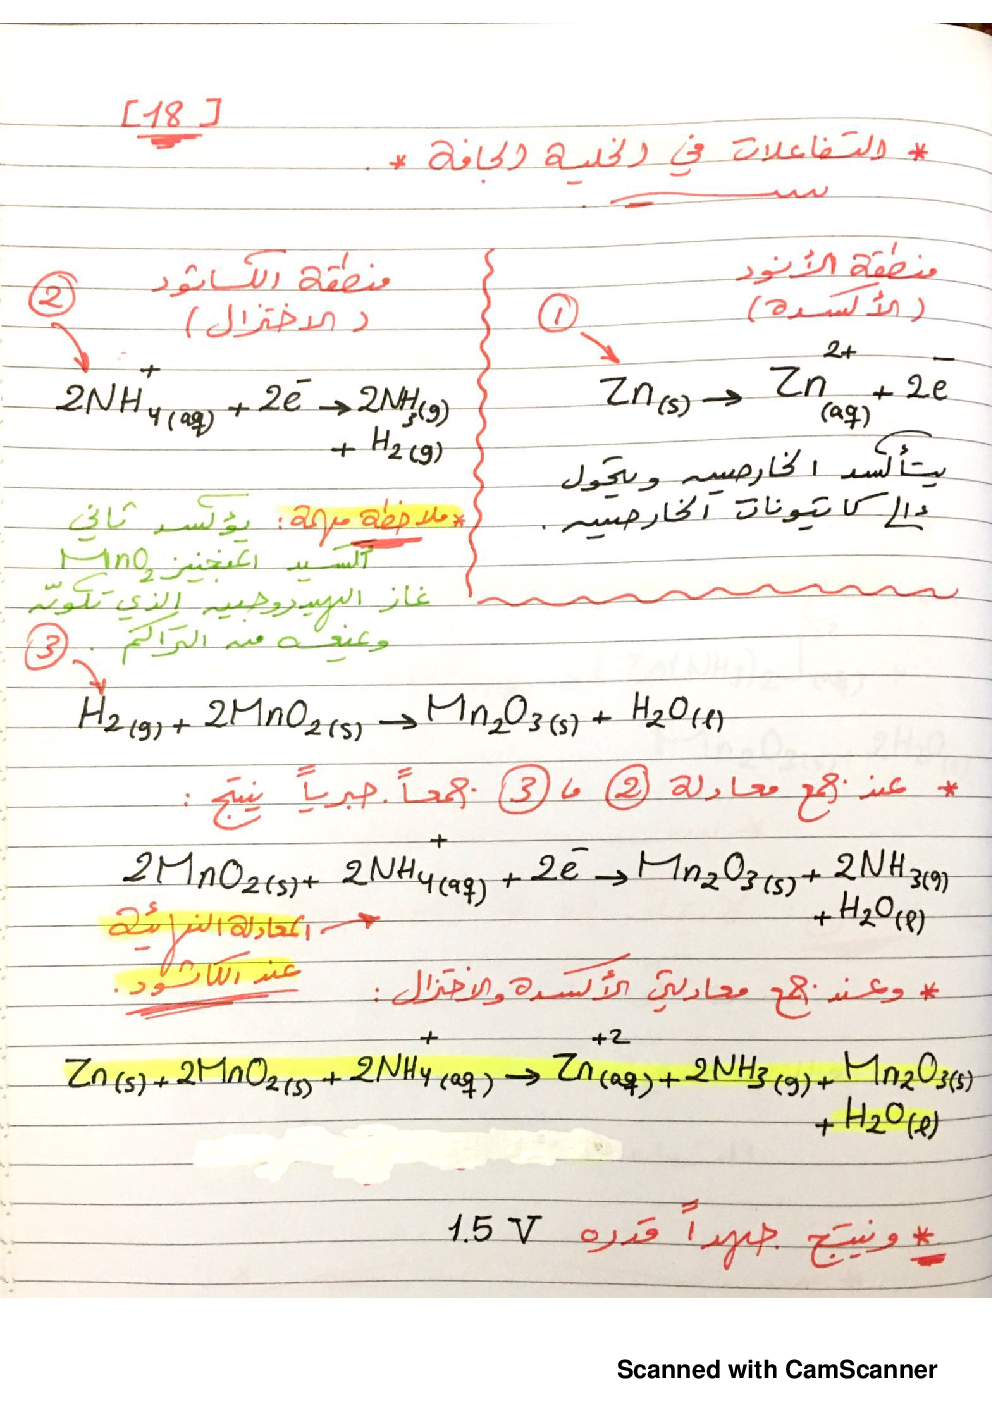 [18]
* التفاعلات في الخلية الجافة *
منطقة الأنود
(الأكسدة)
①
Zn(s) → Zn²⁺(aq) + 2e⁻
يتأكسد الخارصين ويتحول
إلى كاتيونات الخارصين.
منطقة الكاثود
(الاختزال)
②
2NH₄⁺(aq) + 2e⁻ → 2NH₃(g)
+ H₂(g)
*ملاحظة مهمة: يؤكسد ثاني
أكسيد المنجنيز MnO₂
غاز الهيدروجين الذي تكونه
ويمنعه من التراكم.
③
H₂(g) + 2MnO₂(s) → Mn₂O₃(s) + H₂O(l)
* عند جمع معادلة ② ، ③ جمعاً جبرياً ينتج :
2MnO₂(s) + 2NH₄⁺(aq) + 2e⁻ → Mn₂O₃(s) + 2NH₃(g)
+ H₂O(l)
المعادلة النهائية
عند الكاثود.
* وعند جمع معادلتي الأكسدة والاختزال :
Zn(s) + 2MnO₂(s) + 2NH₄⁺(aq) → Zn⁺²(aq) + 2NH₃(g) + Mn₂O₃(s)
+ H₂O(l)
* وينتج جهداً قدره 1.5 V
Scanned with CamScanner